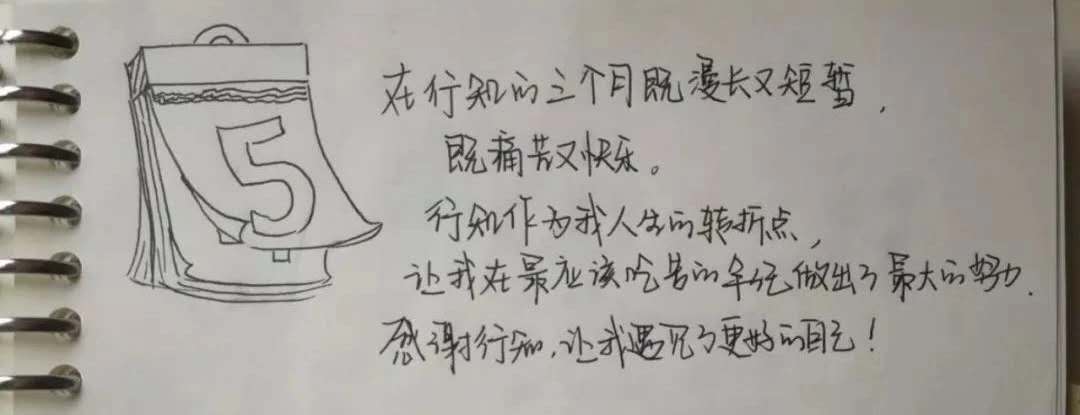 5
在行知的三个月既漫长又短暂，
既痛苦又快乐。
行知作为我人生的转折点，
让我在最应该吃苦的年纪做出了最大的努力．
感谢行知，让我遇见了更好的自己！